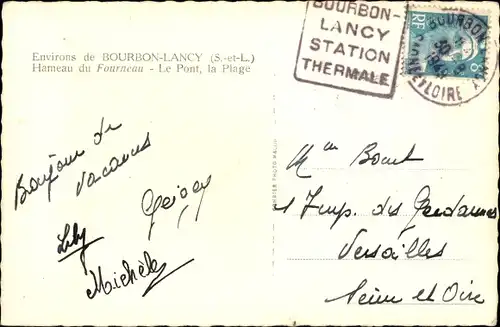 Environs de BOURBON-LANCY (S.-et-L.)
Hameau du Fourneau - Le Pont, la Plage
BOURBON-
LANCY
STATION
THERMALE
BOURBON
RF
8
LOIRE
Bonjour de
vacances
Lily
Michèle
Mme
1 Imp. des Gendarmes
Versailles
Seine et Oise